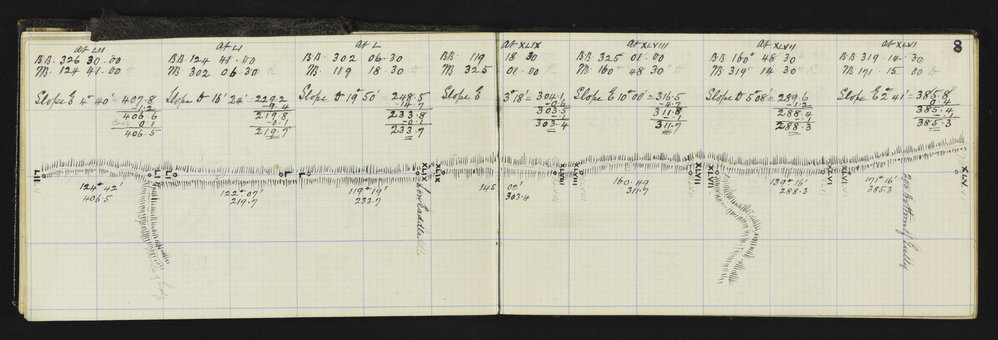 8
at LII
BB 326 30.00
FB. 124 41.00
Slope E 4° 40' = 407.8
-1.2
406.6
0.1
406.5
at LI
BB 124 41.00
FB 302 06.30 R
Slope D 16° 24' = 229.2
-9.4
219.8
-0.1
219.7
at L
BB. 302 06.30
FB. 119 18 30
Slope D 19° 50' = 248.5
-14.7
233.8
-0.1
233.7
at XLIX
BB. 119 18 30
FB 325 01.00 R
Slope E 3° 18' = 304.1
-0.6
303.5
-.1
303.4
at XLVIII
BB 325 01.00
FB. 160° 48 30"
Slope E 10° 00' = 316.5
-4.7
311.8
-.1
311.7
at XLVII
BB 160° 48 30"
FB. 319° 14 30"
Slope D 5° 08' = 289.6
-1.2
288.4
-.1
288.3
at XLVI
BB 319.14.30
FB 171. 15 00
Slope E 2° 41' = 385.8
0.4
385.4
-.1
385.3
LII
LI
LI
L
L
XLIX
XLIX
XLVIII
XLVIII
XLVII
XLVII
XLVI
XLVI
XLV
124° 42'
406.5
122° 07'
219.7
119° 19'
233.7
145 02'
303.4
160.49
311.7
139° 16'
288.3
171° 16'
385.3
Low Saddle
bottom of Gully